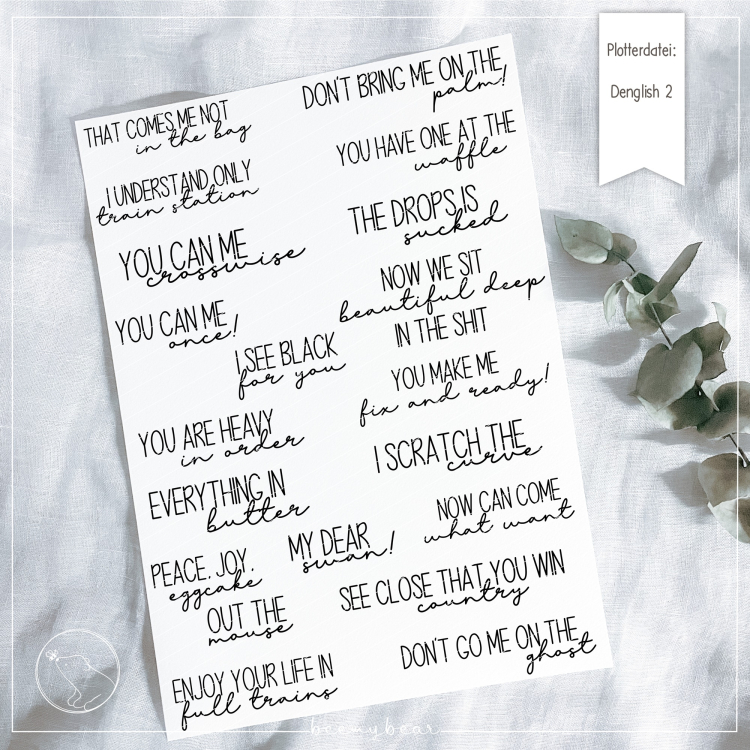 Plotterdatei:
Denglish 2
THAT COMES ME NOT
in the bag
I UNDERSTAND ONLY
train station
YOU CAN ME
crosswise
YOU CAN ME
once!
I SEE BLACK
for you
YOU ARE HEAVY
in order
EVERYTHING IN
butter
PEACE. JOY.
eggcake
MY DEAR
swan!
OUT THE
mouse
ENJOY YOUR LIFE IN
full trains
DON'T BRING ME ON THE
palm!
YOU HAVE ONE AT THE
waffle
THE DROPS IS
sucked
NOW WE SIT
beautiful deep
IN THE SHIT
YOU MAKE ME
fix and ready!
I SCRATCH THE
curve
NOW CAN COME
what want
SEE CLOSE THAT YOU WIN
country
DON'T GO ME ON THE
ghost
beemybear